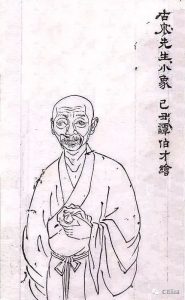 古 先生小象 己丑 譚伯才繪